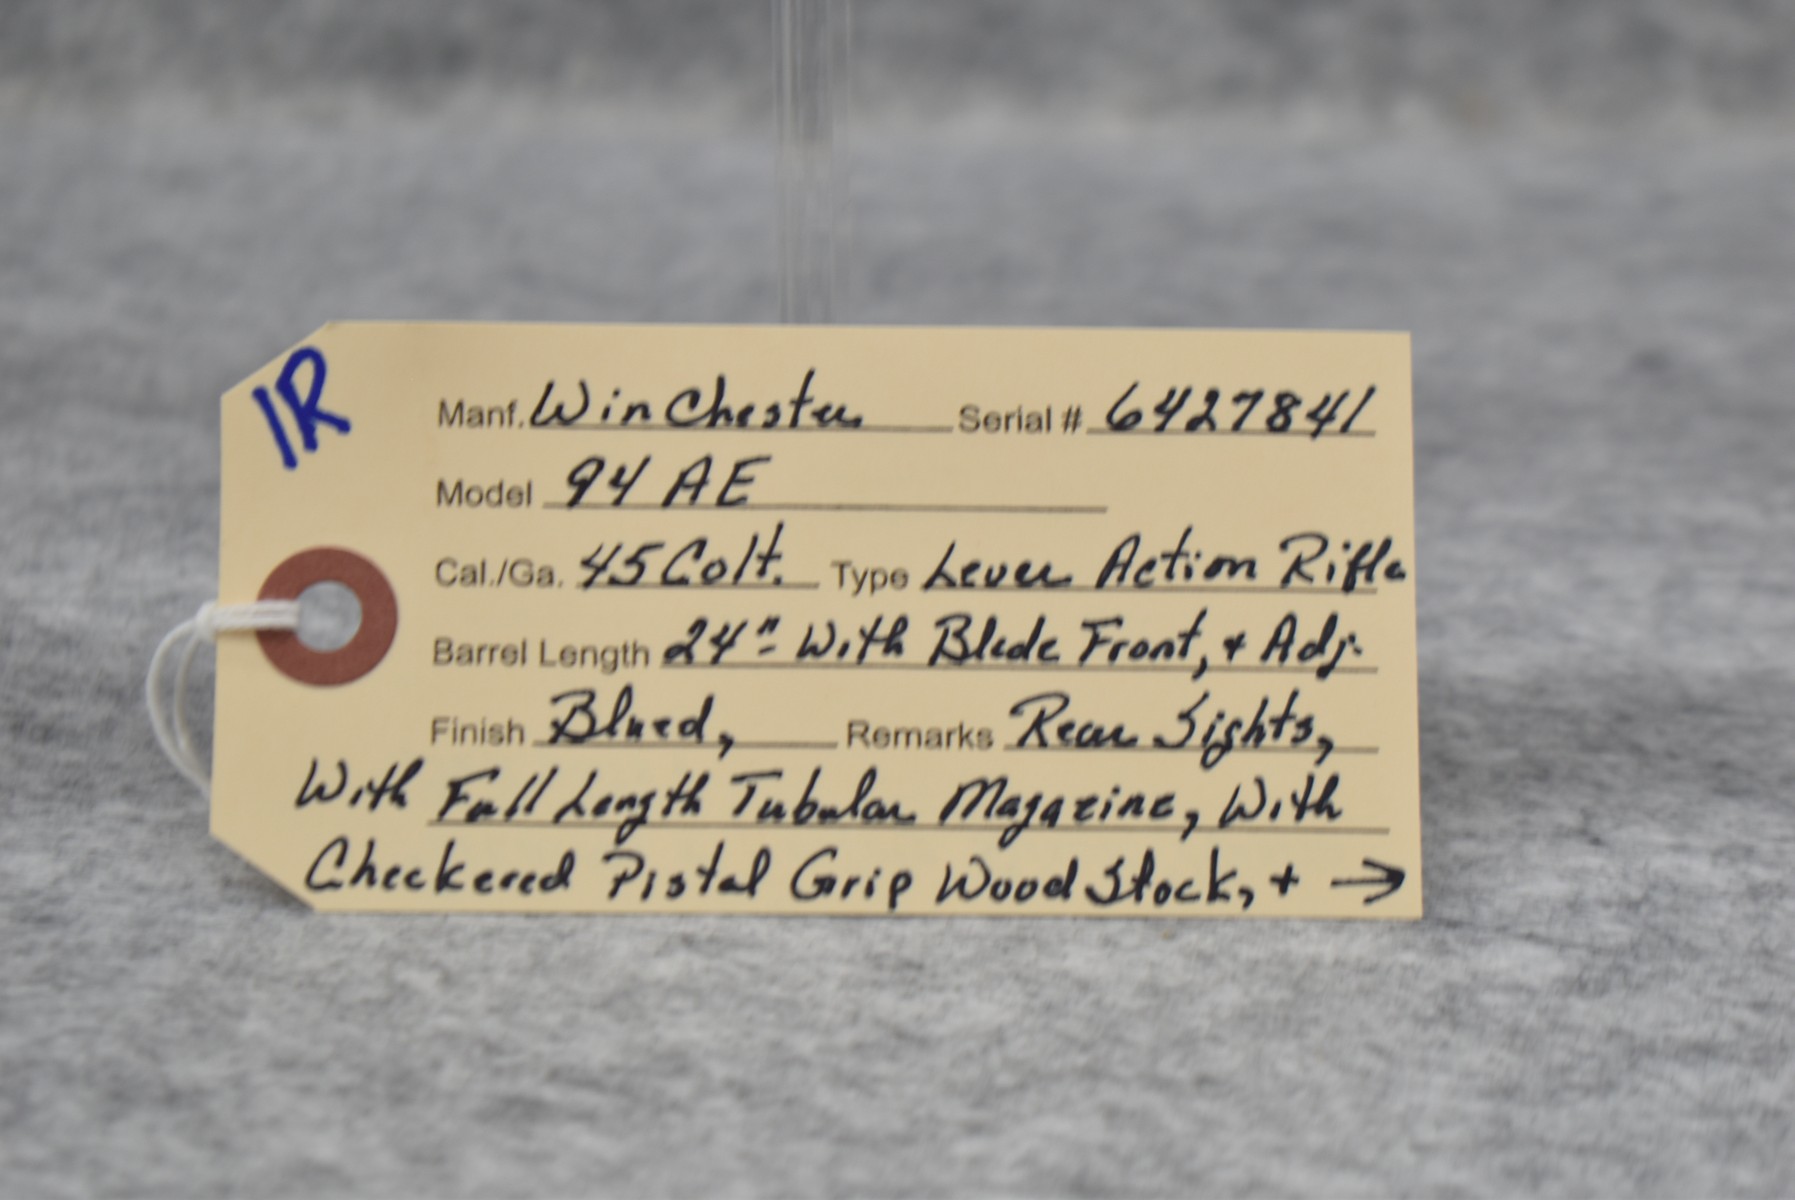 1R
Manf. Winchester Serial # 6427841
Model 94 AE
Cal./Ga. 45 Colt. Type Lever Action Rifle
Barrel Length 24" With Blade Front, + Adj.
Finish Blued, Remarks Rear Sights,
With Full Length Tubular Magazine, With
Checkered Pistal Grip Wood Stock, + →